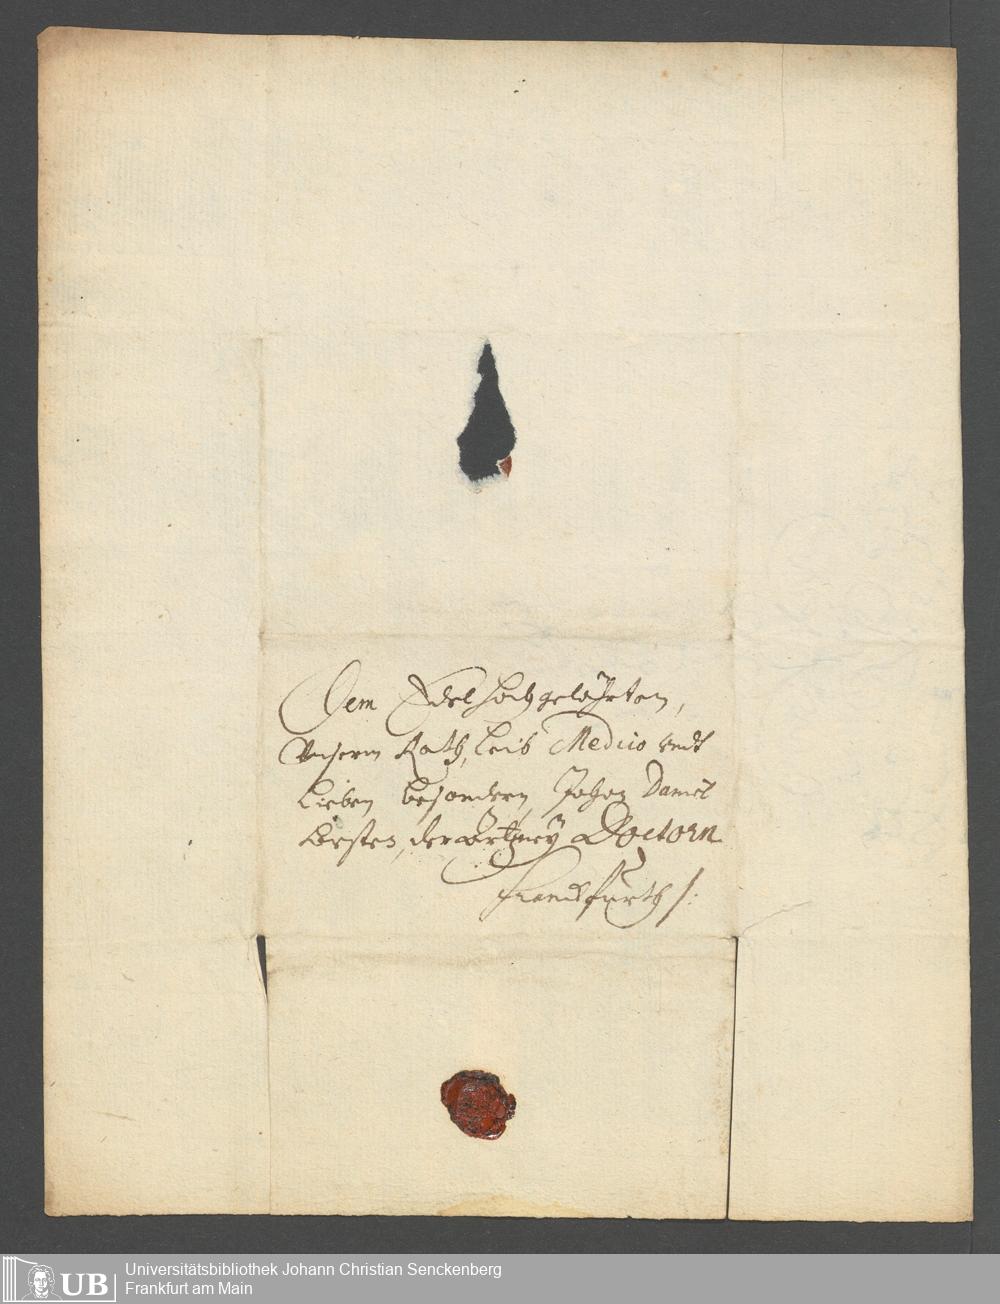 Dem Edel hochgelährten,
Unserm Rath, Leib Medico undt
Lieben besondern, Johan Daniel
der Artzney Doctorn
Franckfurth /:
UB
Universitätsbibliothek Johann Christian Senckenberg
Frankfurt am Main